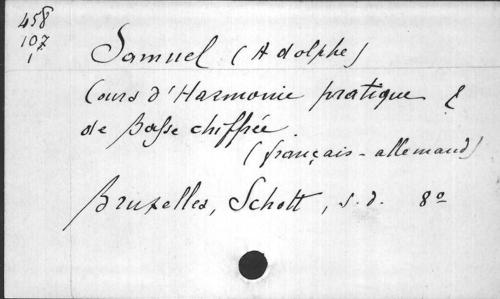 458
107
1
Samuel (Adolphe)
Cours d'Harmonie pratique &
de Basse chiffrée
(français-allemand)
Bruxelles, Schott, s.d. 8º